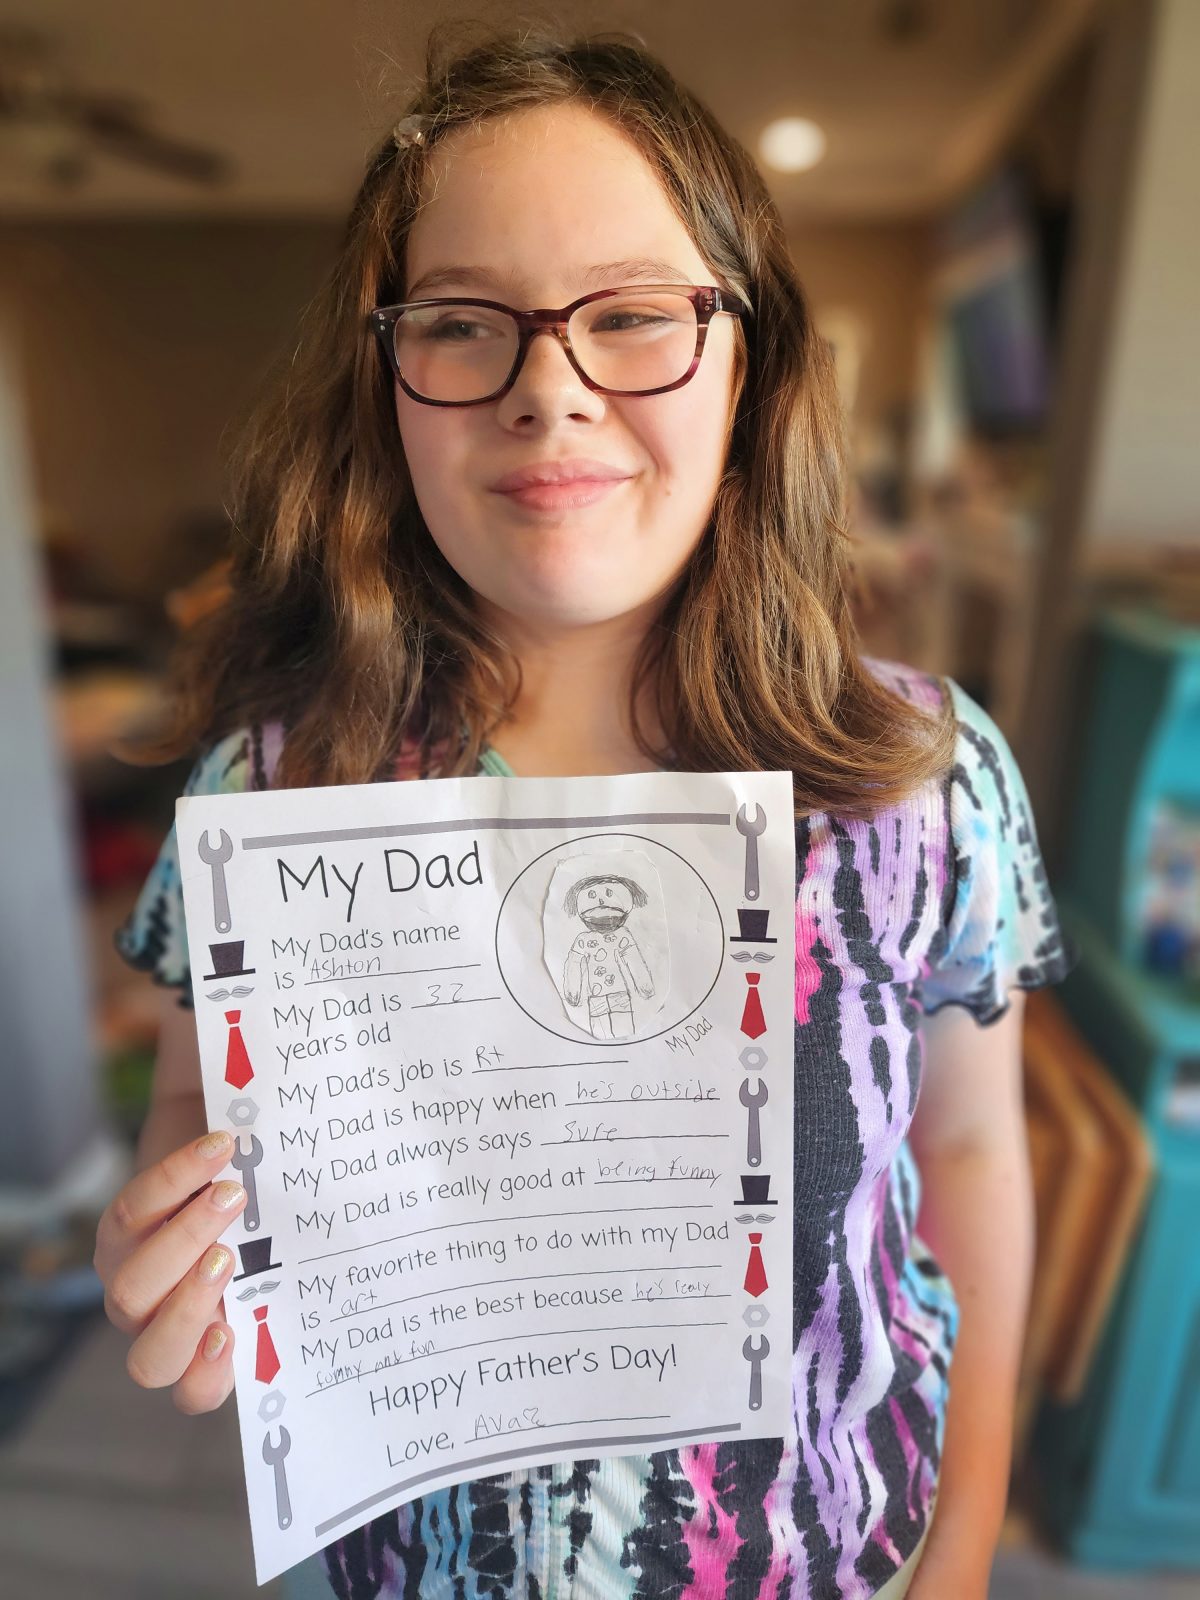 My Dad
My Dad's name
is Ashton
My Dad is 32
years old
My Dad's job is Rt
My Dad is happy when he's outside
My Dad always says Sure
My Dad is really good at being funny
My favorite thing to do with my Dad
is art
My Dad is the best because he's realy
funny and fun
Happy Father's Day!
Love, Ava
My Dad